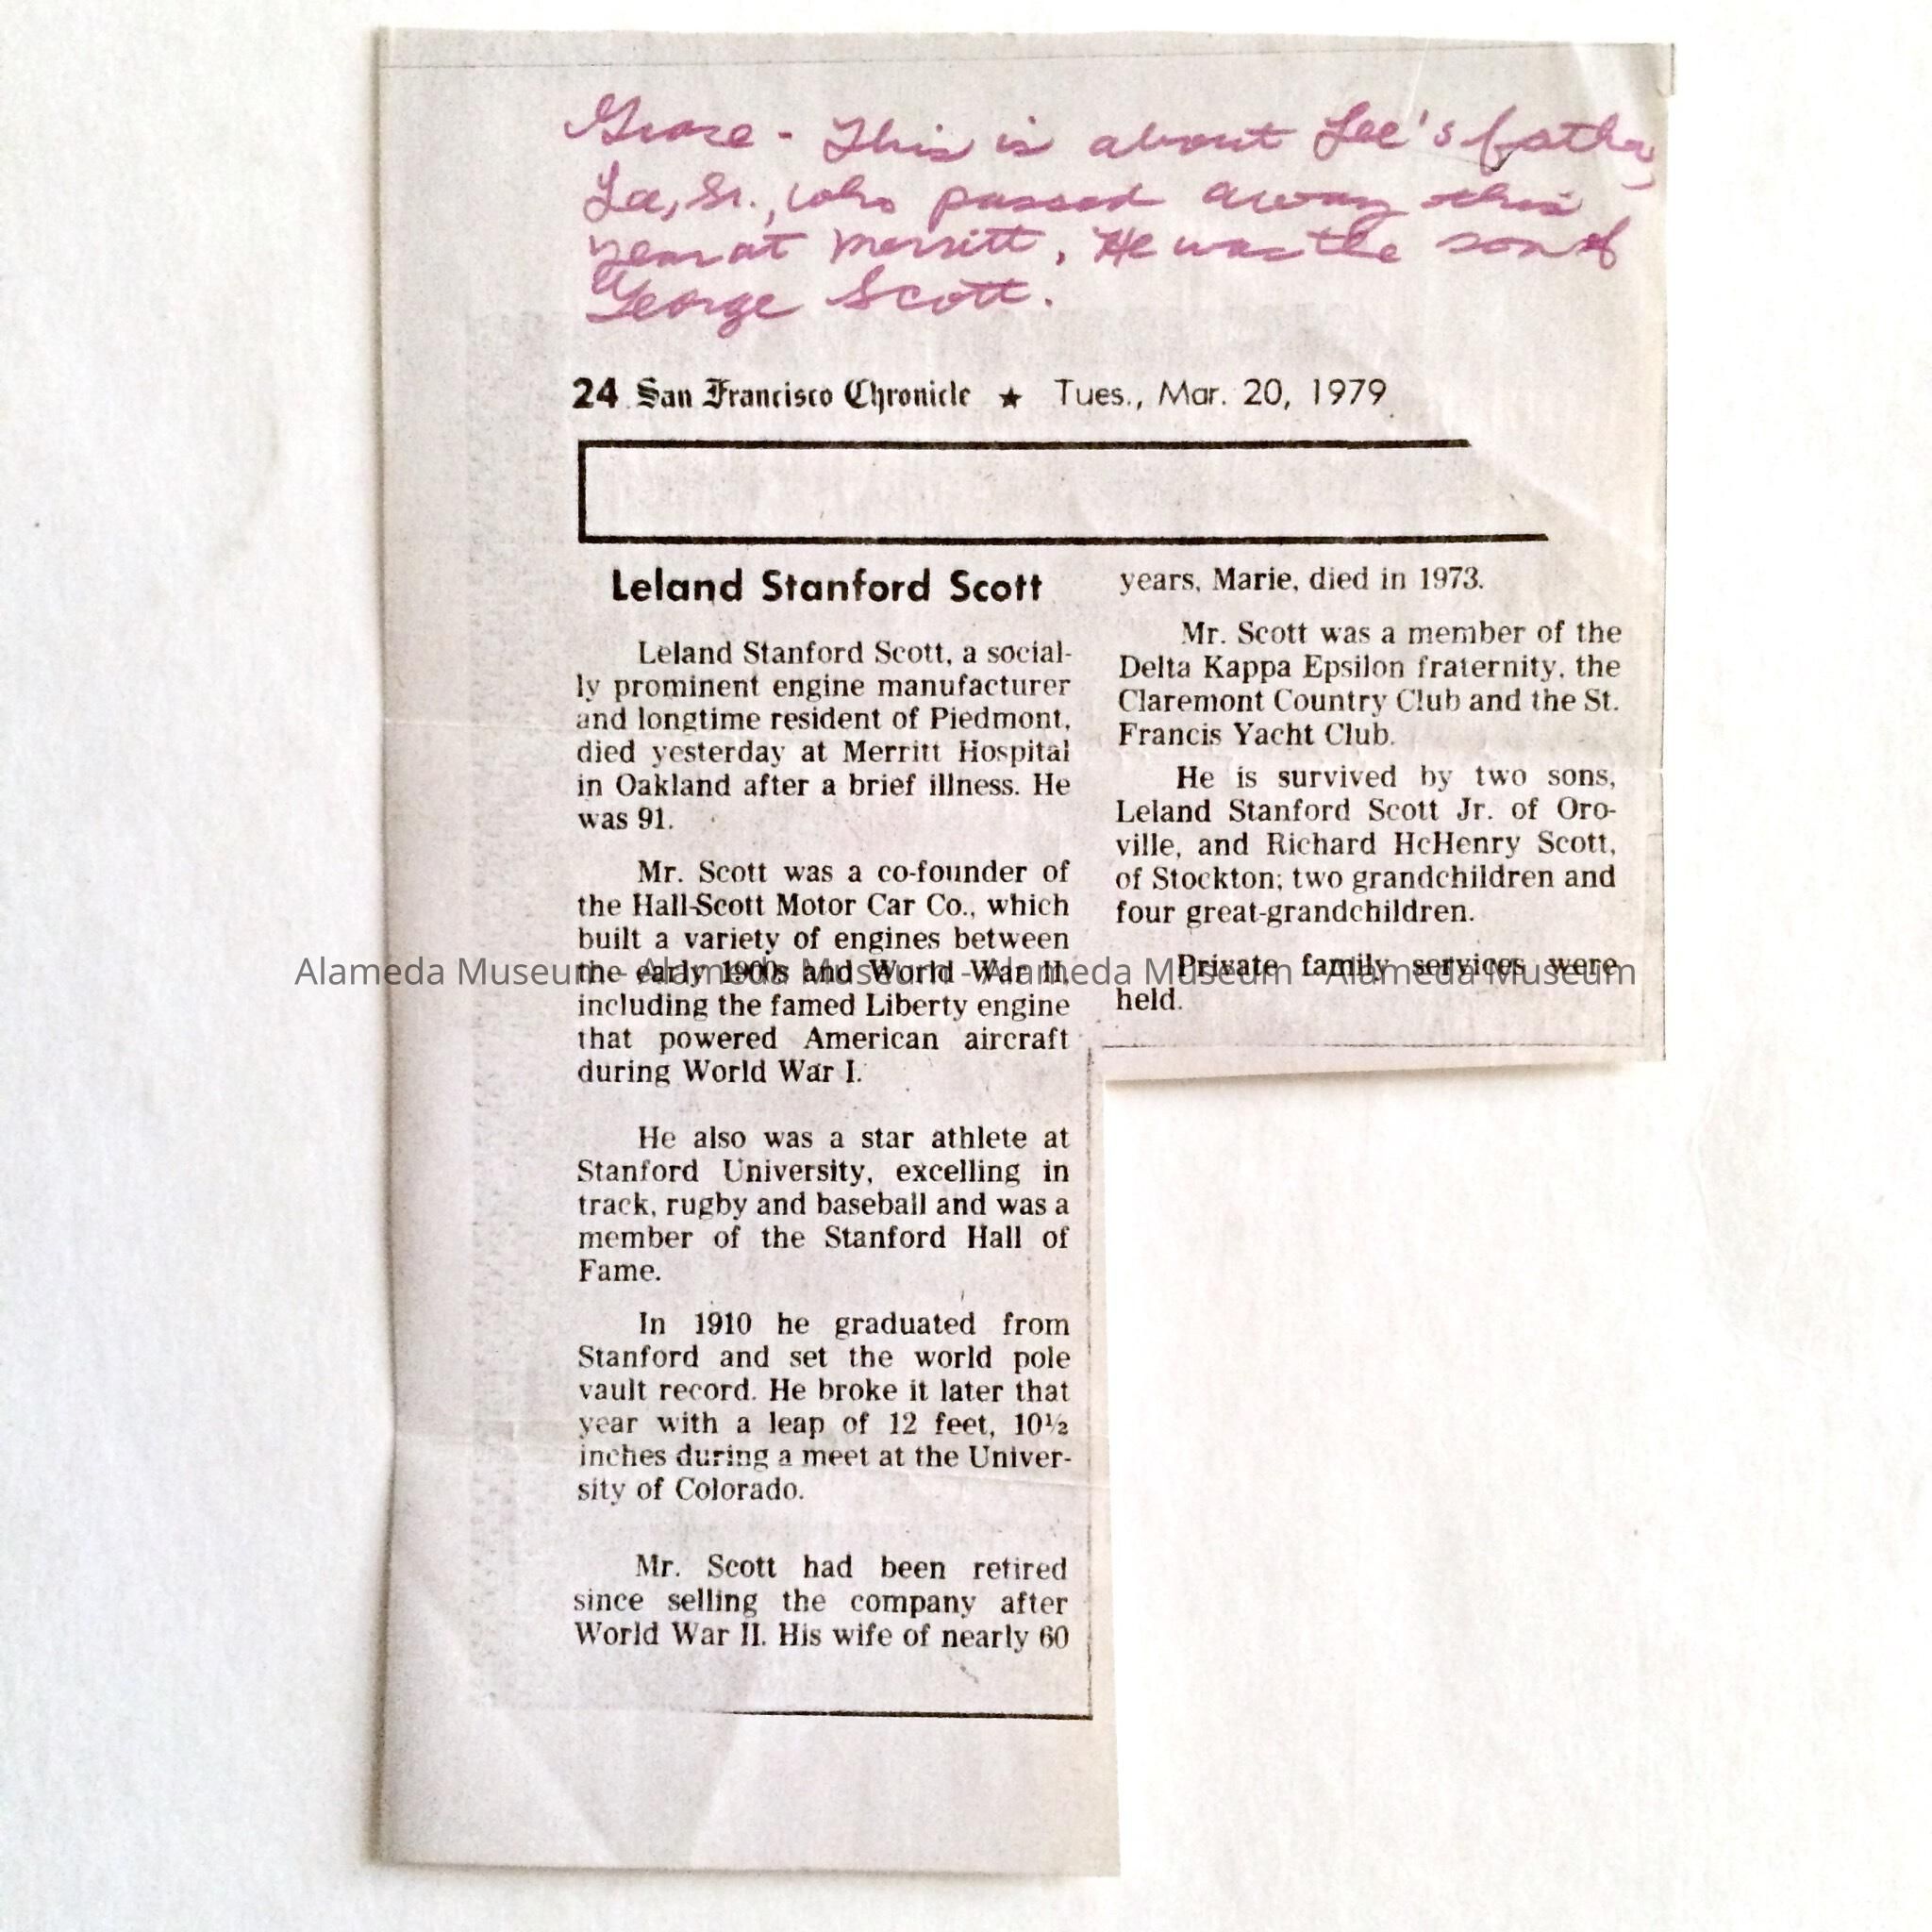 Grace - This is about Lee's father,
Lee, Sr., who passed away this
year at Merritt. He was the son of
George Scott.
24 San Francisco Chronicle ★ Tues., Mar. 20, 1979
Leland Stanford Scott
Leland Stanford Scott, a social-
ly prominent engine manufacturer
and longtime resident of Piedmont,
died yesterday at Merritt Hospital
in Oakland after a brief illness. He
was 91.
Mr. Scott was a co-founder of
the Hall-Scott Motor Car Co., which
built a variety of engines between
the early 1900s and World War II,
including the famed Liberty engine
that powered American aircraft
during World War I.
He also was a star athlete at
Stanford University, excelling in
track, rugby and baseball and was a
member of the Stanford Hall of
Fame.
In 1910 he graduated from
Stanford and set the world pole
vault record. He broke it later that
year with a leap of 12 feet, 10½
inches during a meet at the Univer-
sity of Colorado.
Mr. Scott had been retired
since selling the company after
World War II. His wife of nearly 60
years, Marie, died in 1973.
Mr. Scott was a member of the
Delta Kappa Epsilon fraternity, the
Claremont Country Club and the St.
Francis Yacht Club.
He is survived by two sons,
Leland Stanford Scott Jr. of Oro-
ville, and Richard HcHenry Scott,
of Stockton; two grandchildren and
four great-grandchildren.
Private family services were
held.
Alameda Museum - Alameda Museum - Alameda Museum - Alameda Museum